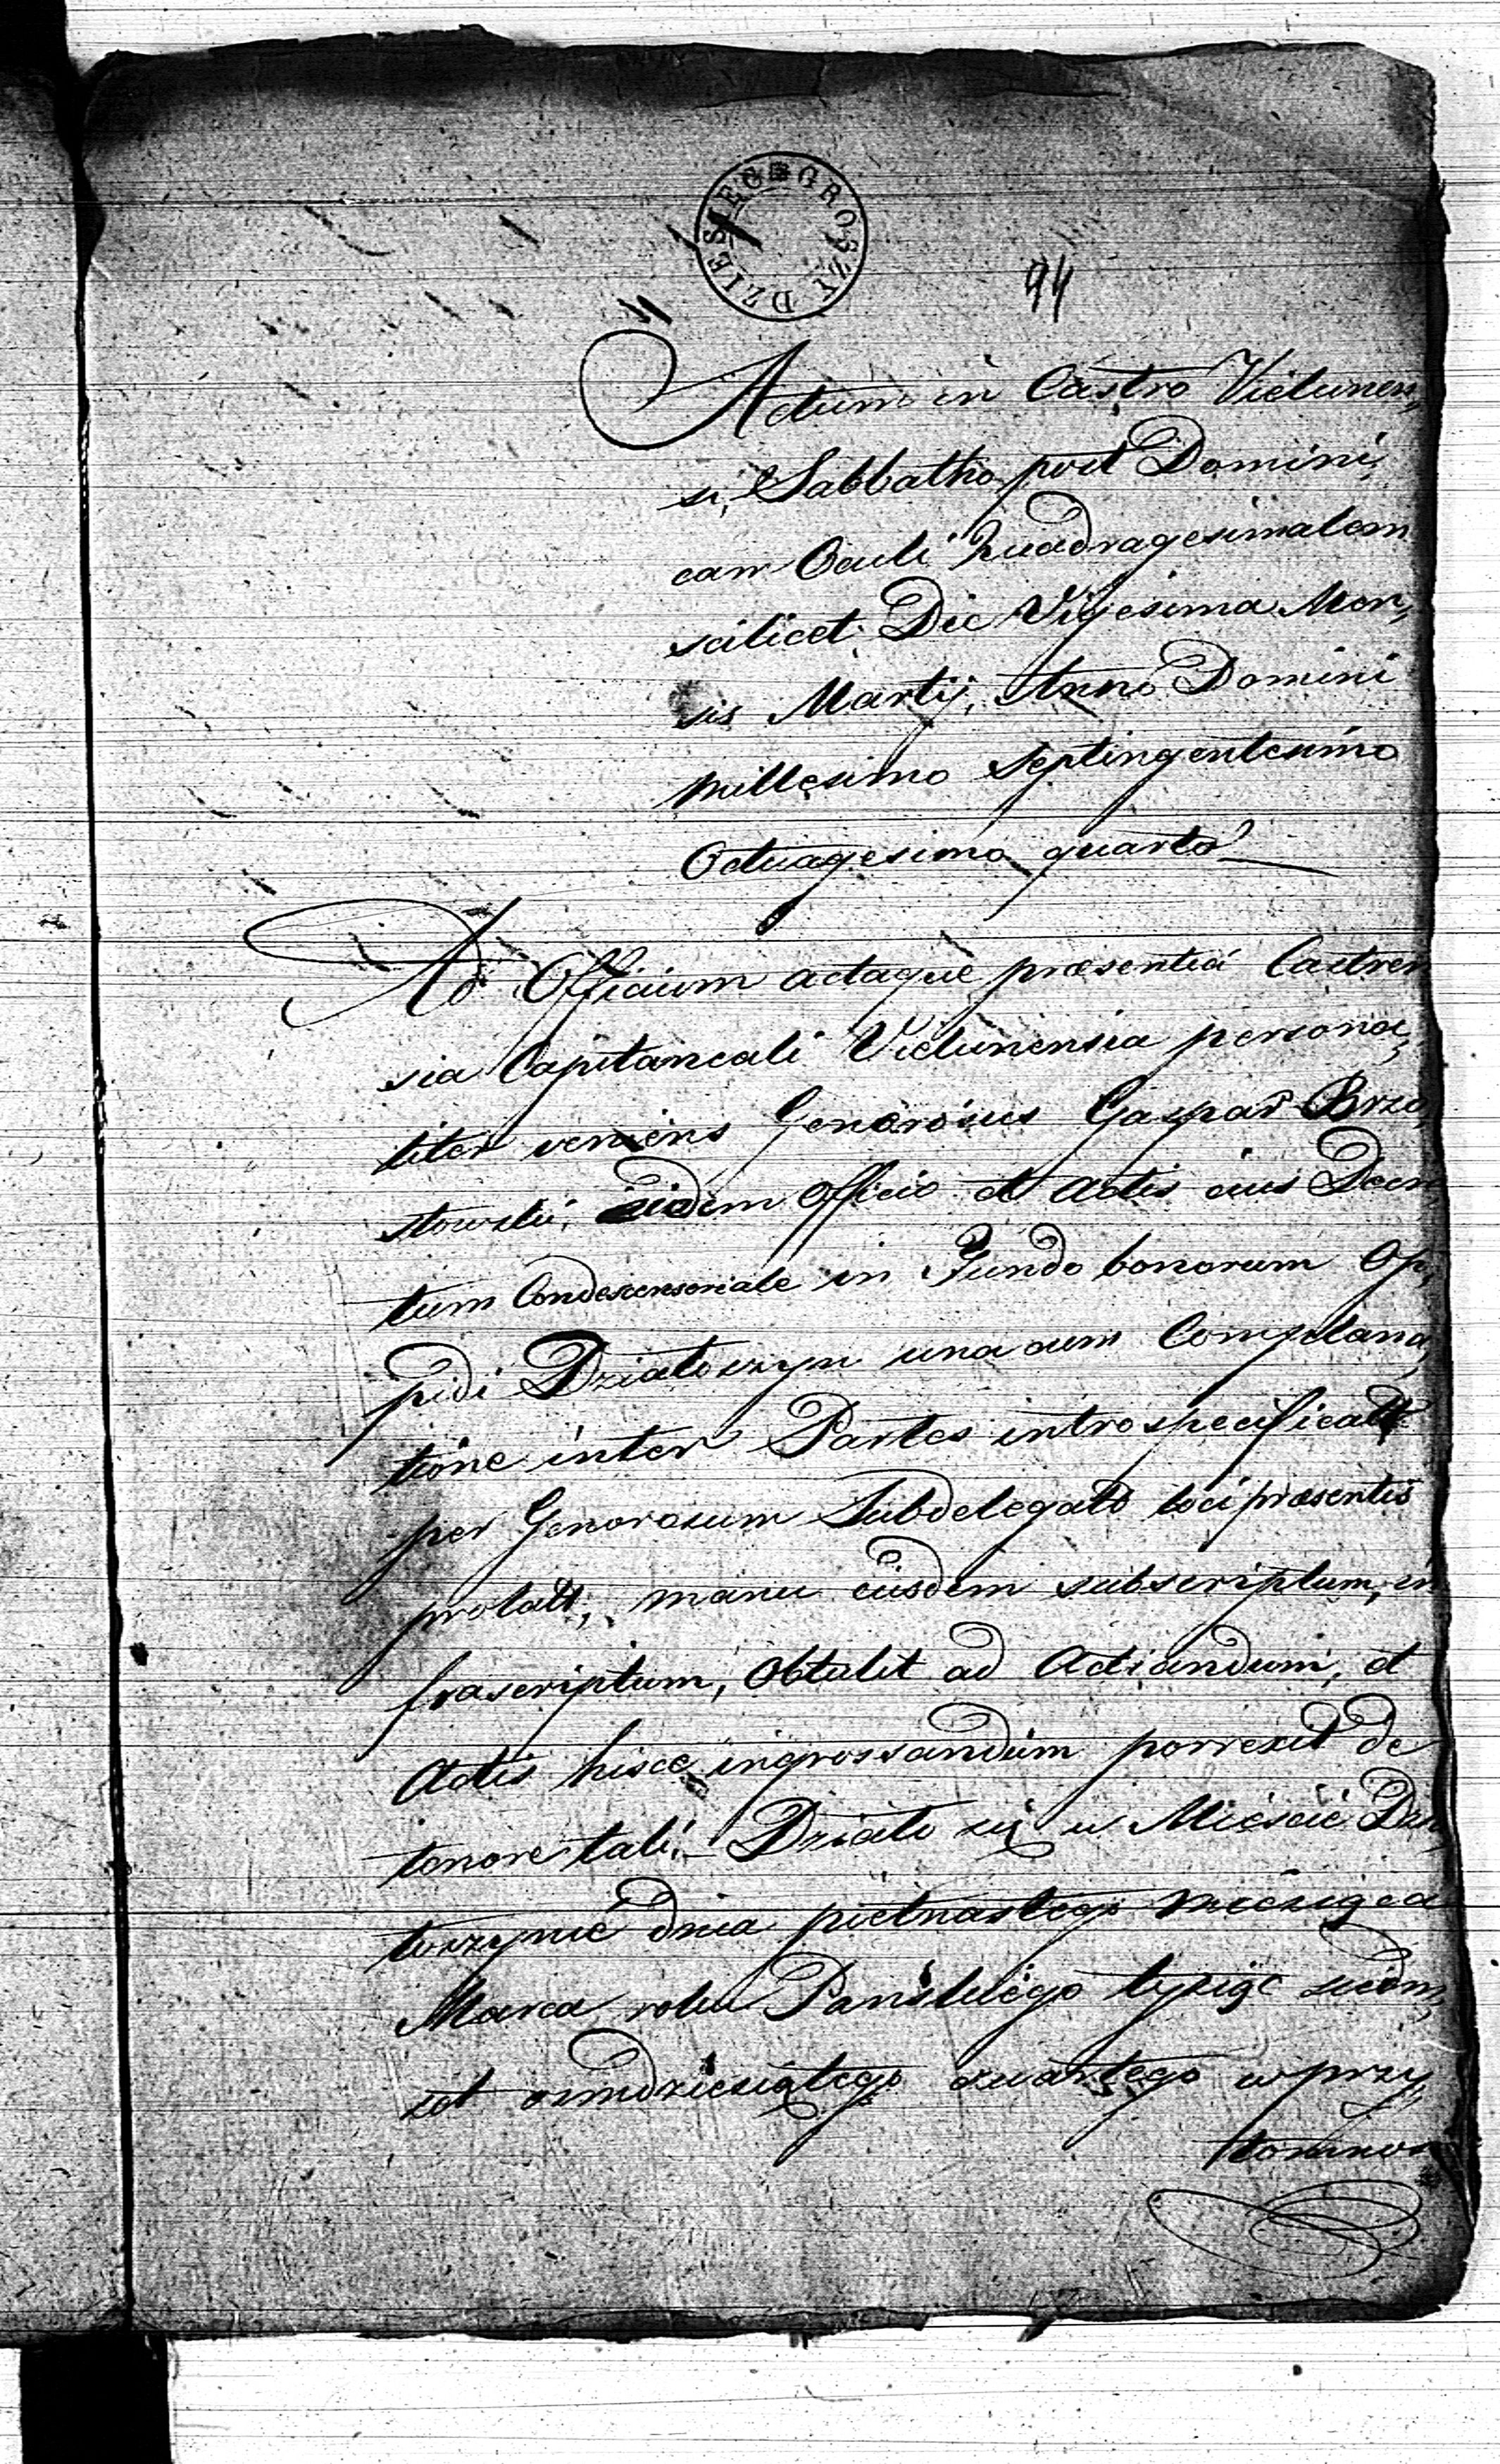 DZIESIĘĆ GROSZY
94
Actum in Castro Vielunen,
si, Sabbatho post Domini,
cam Oculi Quadragesimalem
scilicet Die Vigesima Men,
sis Martij, Anno Domini
millesimo septingentesimo
Octuagesimo quarto
Ad Officium actaque præsentia Castren
sia Capitaneali Vielunensia persona,
liter veniens Generosus Gaspar Brzo
stowski, eidem officio et actis eius Decre
tum Condescensoriale in Fundo bonorum Op,
pidi Działoszyn una cum Complana,
tione inter Partes introspecificatt
per Generosum Subdelegatd loci præsentis
prolatt, manu eiusdem subscriptum, in
frascriptum, obtulit ad Acticandum, et
Actis hisce ingrossandum porrexit de
tenore tali. Działo się w Mieście Dzia,
łoszynie dnia pietnastego miesiąca
Marca roku Pańskiego tysiąc siedm,
set osmdziesiątego czwartego w przy,
tomnos